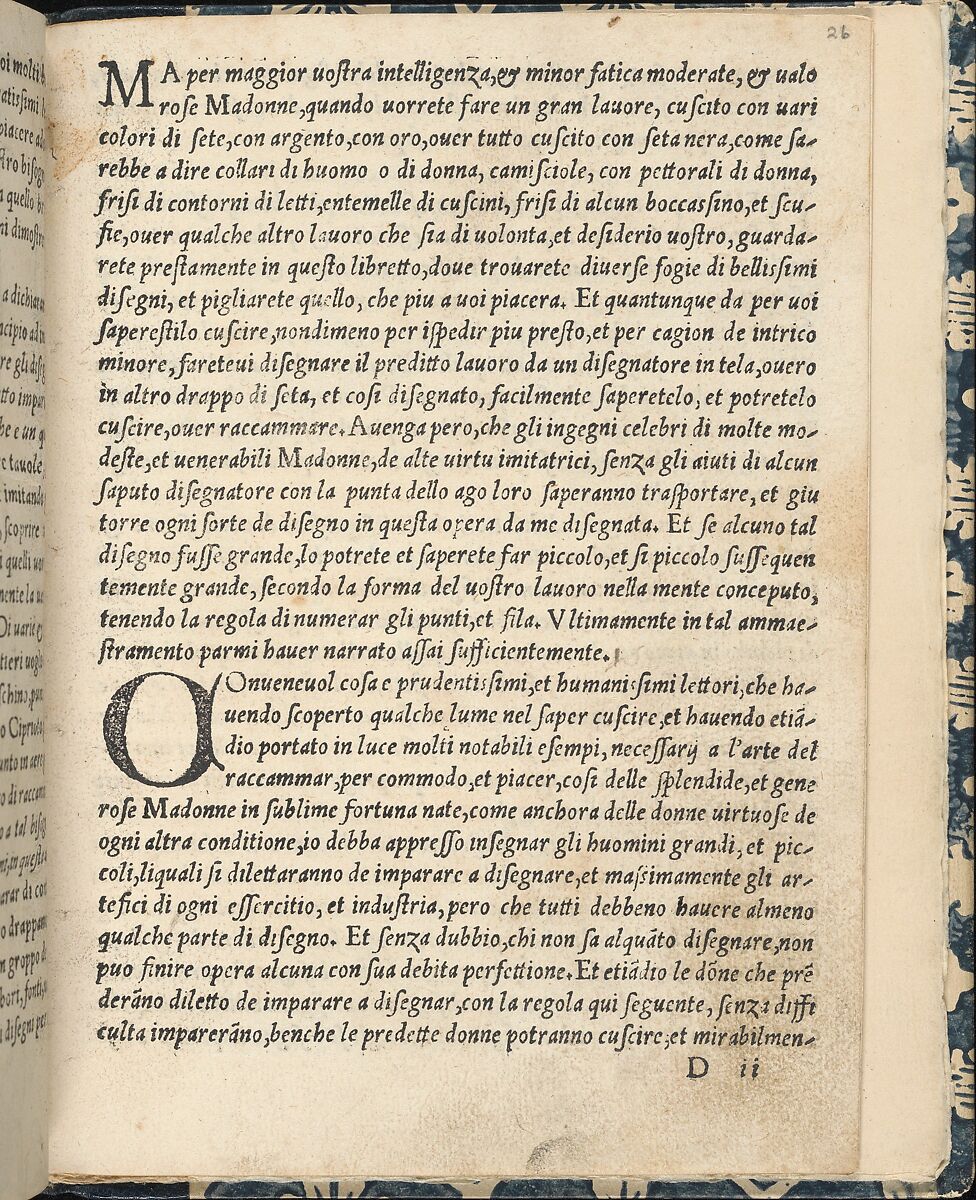 26
MA per maggior uoſtra intelligenza,& minor fatica moderate,& ualo
roſe Madonne,quando uorrete fare un gran lauore, cuſcito con uari
colori di ſete,con argento,con oro,ouer tutto cuſcito con ſeta nera,come ſa-
rebbe a dire collari di huomo o di donna, camiſciole, con pettorali di donna,
friſi di contorni di letti,entemelle di cuſcini, friſi di alcun boccaſsino,et ſcu-
fie,ouer qualche altro lauoro che ſia di uolonta,et deſiderio uoſtro, guarda-
rete preſtamente in queſto libretto,doue trouarete diuerſe fogie di belliſsimi
diſegni, et pigliarete quello, che piu a uoi piacera. Et quantunque da per uoi
ſapereſtilo cuſcire,nondimeno per iſpedir piu preſto,et per cagion de intrico
minore, fareteui diſegnare il preditto lauoro da un diſegnatore in tela,ouero
in altro drappo di ſeta, et coſi diſegnato, facilmente ſaperetelo, et potretelo
cuſcire,ouer raccammare. Auenga pero,che gli ingegni celebri di molte mo-
deſte,et uenerabili Madonne,de alte uirtu imitatrici, ſenza gli aiuti di alcun
ſaputo diſegnatore con la punta dello ago loro ſaperanno traſportare, et giu
torre ogni ſorte de diſegno in queſta opera da me diſegnata. Et ſe alcuno tal
diſegno fuſſe grande,lo potrete et ſaperete far piccolo,et ſi piccolo ſuſſequen
temente grande, ſecondo la forma del uoſtro lauoro nella mente conceputo,
tenendo la regola di numerar gli punti,et fila. Vltimamente in tal ammae-
ſtramento parmi hauer narrato aſſai ſufficientemente.
COnueneuol coſa e prudentiſsimi,et humaniſsimi lettori,che ha-
uendo ſcoperto qualche lume nel ſaper cuſcire,et hauendo etiã-
dio portato in luce molti notabili eſempi, neceſſarij a l'arte del
raccammar,per commodo,et piacer,coſi delle ſplendide,et gene
roſe Madonne in ſublime fortuna nate,come anchora delle donne uirtuoſe de
ogni altra conditione,io debba appreſſo inſegnar gli huomini grandi, et pic-
coli,liquali ſi dilettaranno de imparare a diſegnare,et maſsimamente gli ar-
tefici di ogni eſſercitio, et induſtria, pero che tutti debbeno hauere almeno
qualche parte di diſegno. Et ſenza dubbio,chi non ſa alquãto diſegnare,non
puo finire opera alcuna con ſua debita perfettione. Et etiãdio le dõne che prẽ
derãno diletto de imparare a diſegnar,con la regola qui ſeguente, ſenza diffi
culta imparerãno,benche le predette donne potranno cuſcire,et mirabilmen-
D ii